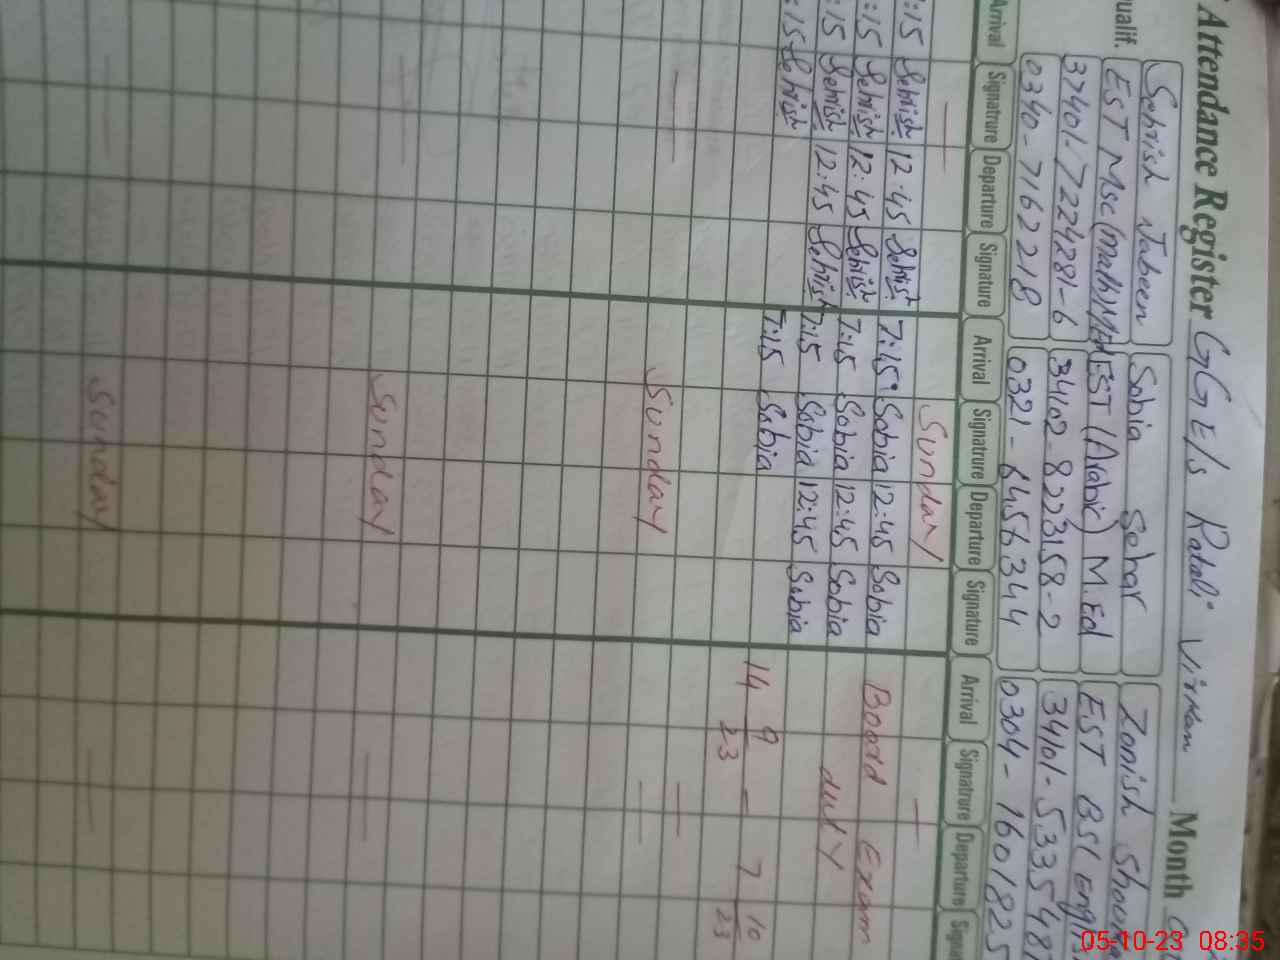 Attendance Register GGE/s Ratali Virkan Month
ualif.
Sehrish Jabeen Sobia Sehar Zonish
EST Msc (math) M.Ed EST (Arabic) M.Ed EST BSc English
37401-7224281-6 34102-8223158-2 34101-5335487
0340-7162218 0321-6456344 0304-1601825
Arrival Signatrure Departure Signature Arrival Signatrure Departure Signature Arrival Signatrure Departure
Sunday
:15 Sehrish 12:45 Sehrish 7:15 Sobia 12:45 Sobia Board Exam
:15 Sehrish 12:45 Sehrish 7:15 Sobia 12:45 Sobia duty
:15 Sehrish 12:45 Sehrish 7:15 Sobia 12:45 Sobia
:15 Sehrish 7:15 Sobia
14 9/23 - 7 10/23
Sunday
Sunday
Sunday
05-10-23 08:35